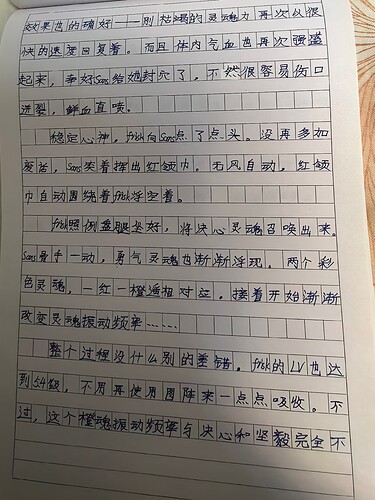 效果也的确好——刚枯竭的灵魂力再次以很
快的速度回复着。而且体内气血也再次强盛
起来,幸好Sans给她封穴了,不然很容易伤口
迸裂,鲜血直喷。
稳定心神,frisk向Sans点了点头。没再多加
废话,Sans笑着挥出红领巾。无风自动,红领
巾自动围绕着frisk浮空着。
frisk照例盘腿坐好,将决心灵魂召唤出来。
Sans骨手一动,勇气灵魂也渐渐浮现。两个彩
色灵魂,一红一橙遥相对应。接着开始渐渐
改变灵魂振动频率……
整个过程没什么别的差错。frisk的LV也达
到54级,不用再使用图阵来一点点吸收。不
过,这个橙魂振动频率与决心和坚毅完全不